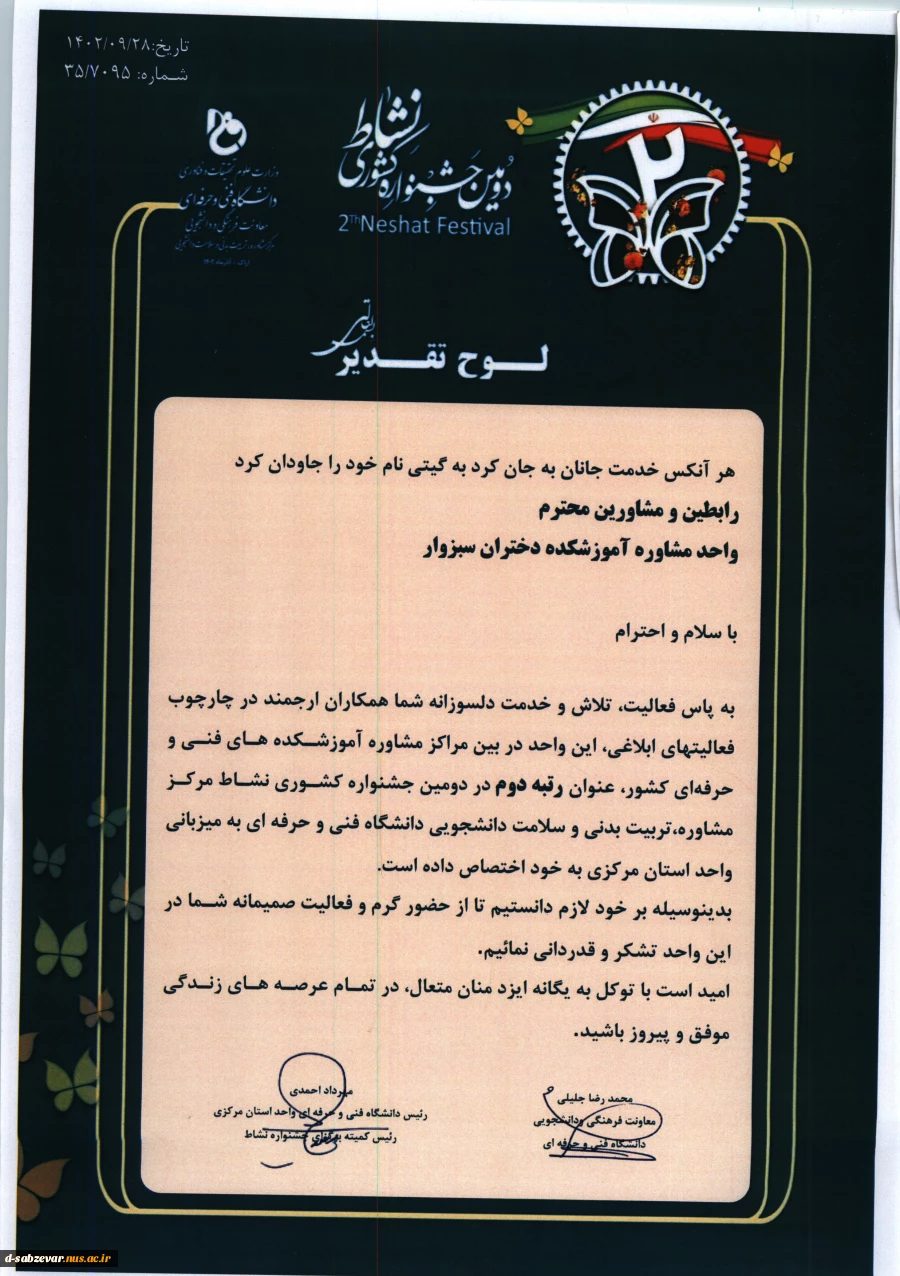 تاریخ:۱۴۰۲/۰۹/۲۸
شماره: ۳۵/۷۰۹۵
وزارت علوم تحقیقات و فناوری
دانشگاه فنی و حرفه‌ای
معاونت فرهنگی و دانشجویی
مرکز مشاوره، تربیت بدنی و سلامت دانشجویی
دومین جشنواره کشوری نشاط
2Th Neshat Festival
۲
لوح تقدیر
هر آنکس خدمت جانان به جان کرد به گیتی نام خود را جاودان کرد
رابطین و مشاورین محترم
واحد مشاوره آموزشکده دختران سبزوار
با سلام و احترام
به پاس فعالیت، تلاش و خدمت دلسوزانه شما همکاران ارجمند در چارچوب
فعالیتهای ابلاغی، این واحد در بین مراکز مشاوره آموزشکده های فنی و
حرفه‌ای کشور، عنوان رتبه دوم در دومین جشنواره کشوری نشاط مرکز
مشاوره،تربیت بدنی و سلامت دانشجویی دانشگاه فنی و حرفه ای به میزبانی
واحد استان مرکزی به خود اختصاص داده است.
بدینوسیله بر خود لازم دانستیم تا از حضور گرم و فعالیت صمیمانه شما در
این واحد تشکر و قدردانی نمائیم.
امید است با توکل به یگانه ایزد منان متعال، در تمام عرصه های زندگی
موفق و پیروز باشید.
محمد رضا جلیلی
معاونت فرهنگی ودانشجویی
دانشگاه فنی و حرفه ای
مهرداد احمدی
رئیس دانشگاه فنی و حرفه ای واحد استان مرکزی
رئیس کمیته برگزاری جشنواره نشاط
d-sabzevar.nus.ac.ir